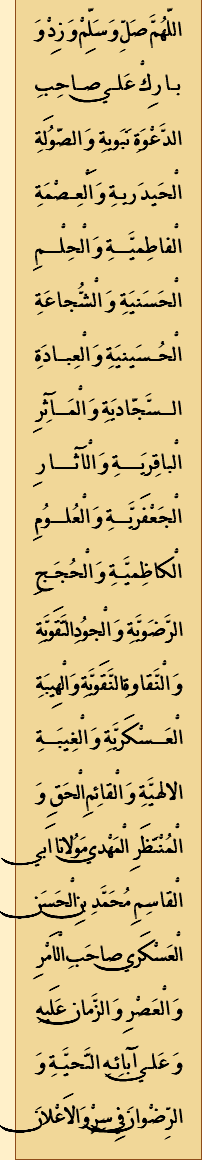 اللّهُمَّ صَلِّ وَسَلِّمْ وَ زِدْ وَ
بارِكْ عَلی صاحِبِ
الدَّعْوَةِ نَبَویةِ وَ الصّوُلَةِ
الْحَیدَریةِ وَ الْعِصْمَةِ
الْفاطِمیَّةِ وَ الْحِلْمِ
الْحَسَنیَةِ وَ الشُّجاعَةِ
الْحُسَینیَةِ وَ الْعِبادَةِ
السَّجّادیَةِ وَ الْمَآثِرِ
الْباقِریَةِ وَ الْآثارِ
الْجَعْفَریَّةِ وَ الْعُلوُمِ
الْکاظِمیَّةِ وَ الْحُجَجِ
الرَّضَویَّةِ وَ الْجوُدِ التَّقَویَّةِ
وَ النَّقاوةِ النَّقَویَّةِ وَ الْهَیبَةِ
الْعَسْکَریَّةِ وَ الْغِیبَةِ
الالهیَّةِ وَ الْقائِمِ الْحَقِ وَ
الْمُنْتَظَرِ الْمَهْدی مَوْلانا اَبی
الْقاسِمِ مُحَمَّدِ بنِ الْحَسَنِ
الْعَسْکَری صاحَبِ الْاَمْرِ
وَ الْعَصْرِ وَ الزَّمانِ عَلَیهِ
وَ عَلی آبائِهِ التَّحیَّةِ وَ
الرِّضْوانِ فی سِرْ وَ الْاَعْلانِ